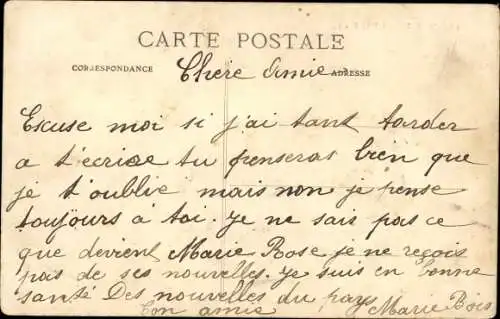 CARTE POSTALE
CORRESPONDANCE
ADRESSE
Chere Amie
Excuse moi si j'ai tant tarder
a t'ecrire tu penseras bien que
je t'oublie mais non je pense
toujours à toi. je ne sais pas ce
que devient Marie Rose je ne reçois
pas de ses nouvelles. je suis en bonne
santé Des nouvelles du pays
ton amie Marie Bois